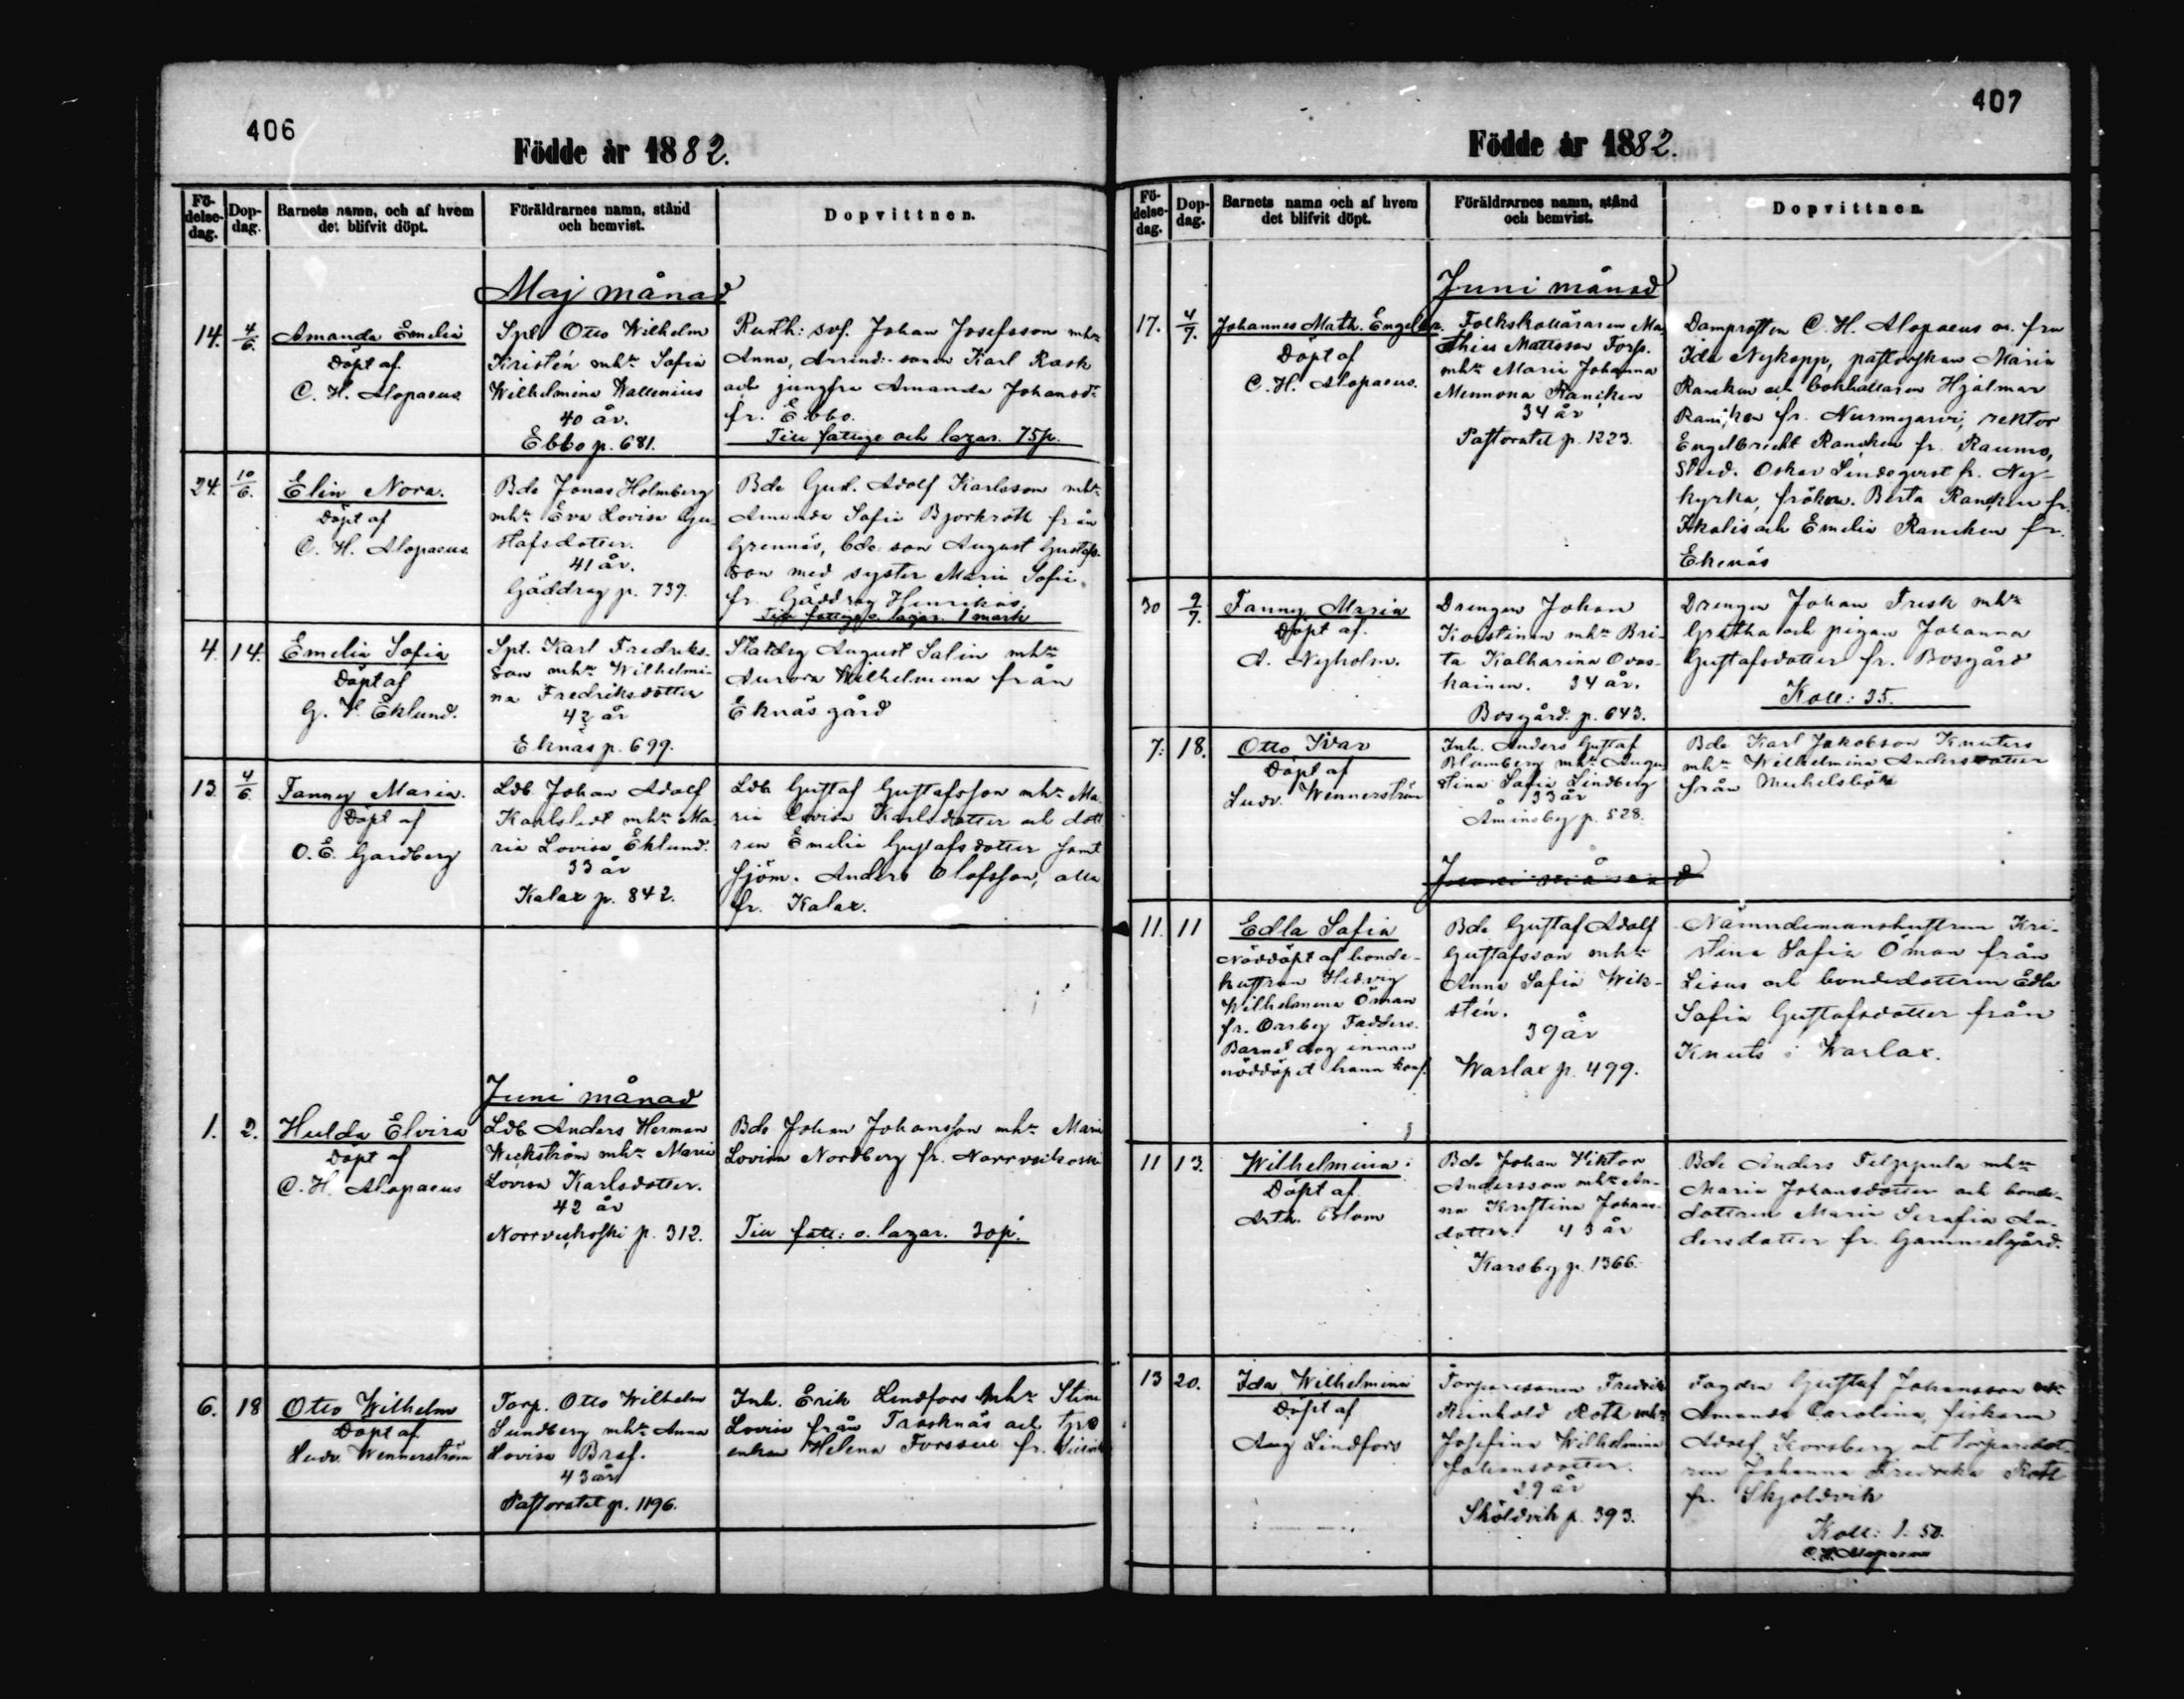 406
Födde år 1882.
Fö-
delse-
dag.
Dop-
dag.
Barnets namn, och af hvem
det blifvit döpt.
Föräldrarnes namn, stånd
och hemvist.
Dopvittnen.
Maj månad
14. 4/6.
Amanda Emelia
Döpt af
C. H. Alopaeus
Spl Otto Wilhelm
Kristén mhu Sofia
Wilhelmina Wallenius
40 år.
Ebbo p. 681.
Rusth: svf. Johan Josefsson mhu
Anna, Arrend: sonen Karl Rask
och jungfru Amanda Johansdr
fr. Ebbo.
Till fattige och lazar. 75p.
24. 10/6.
Elin Nora.
Döpt af
C. H. Alopaeus.
Bde Jonas Holmberg
mhu Eva Lovisa Gu-
stafsdotter.
41 år.
Gäddrag p. 739.
Bde Gust. Adolf Karlsson mhu
Amanda Sofia Bjorkroth från
Grennäs, bde son August Gustafs-
son med syster Maria Sofia
fr. Gäddrag Henrikas.
Till fattige o. lazar. 1 mark
4. 14.
Emelia Sofia
Döpt af
G. V. Eklund.
Spt. Karl Fredriks-
son mhu Wilhelmi-
na Fredriksdotter
42 år
Eknäs p. 699.
Statdrg August Salin mhu
Aurora Wilhelmina från
Eknäs gård
13 4/6
Fanny Maria.
Döpt af
O. E. Gardberg
Ldb. Johan Adolf
Karlstedt mhu Ma-
ria Lovisa Eklund.
33 år
Kalax p. 842.
Ldb. Gustaf Gustafsson mhu Ma-
ria Lovisa Karlsdotter och dott
ren Emelia Gustafsdotter samt
sjöm. Anders Olofsson, alla
fr. Kalax.
Juni månad
1. 2.
Hulda Elvira
Döpt af
C. H. Alopaeus
Ldb Anders Herman
Wickström mhu Maria
Lovisa Karlsdotter.
42 år
Norrveckoski p. 312.
Bde Johan Johansson mhu Maria
Lovisa Nordberg fr. Norrveckoski
Till fatt: o. lazar. 30p.
6. 18
Otto Wilhelm
Döpt af
Ludv. Wennerström
Torp. Otto Wilhelm
Sundberg mhu Anna
Lovisa Braf.
43 år
Pastoratet p. 1196.
Inh. Erik Lindfors mhu Stina
Lovisa från Trasknäs och
enkan Helena Forssell fr.
407
Födde år 1882.
Fö-
delse-
dag.
Dop-
dag.
Barnets namn och af hvem
det blifvit döpt.
Föräldrarnes namn, stånd
och hemvist.
Dopvittnen.
Juni månad
17. 4/7.
Johannes Math. Engelbr.
Döpt af
C. H. Alopaeus.
Folkskolläraren Ma-
thias Mattsson Forss.
mhu Maria Johanna
Mennona Rancken
34 år
Pastoratet p. 1223.
Domprosten C. H. Alopaeus o. fru
Ida Nykopp, pastorskan Maria
Rancken och bokhållaren Hjalmar
Rancken fr. Nurmijarvi, rektor
Engelbrecht Rancken fr. Raumo,
Stud. Oskar Lindeqvist fr. Ny-
kyrka, frökn. Berta Rancken fr.
Ikalis och Emelia Rancken fr.
Ekenäs
30 9/7.
Fanny Maria
Döpt af.
A. Nyholm.
Drengen Johan
Koistinen mhu Bri-
ta Katharina Ovas-
kainen. 34 år.
Bosgård. p. 643.
Drengen Johan Frisk mhu
Gretha och pigan Johanna
Gustafsdotter fr. Bosgård
Koll: 35.
7. 18.
Otto Ivar
Döpt af
Ludv. Wennerström
Inh. Anders Gustaf
Blumberg mhu Augu
stina Sofia Lindberg
33 år
Åminsby p. 528.
Bde Karl Jakobson Knuters
mhu Wilhelmina Andersdotter
från Mickelsböle
Juni månad
11. 11
Edla Sofia
Nöddöpt af bonde-
hustrun Hedvig
Wilhelmina Öman
fr. Orrby Fadders.
Barnet dog innan
nöddöpet hann konf.
Bde Gustaf Adolf
Gustafsson mhu
Anna Sofia Wik-
stén.
39 år
Warlax p. 499.
Nämndemanshustrun Kri-
stina Sofia Öman från
Lisus och bondedottren Edla
Sofia Gustafsdotter från
Knuts i Warlax.
11 13.
Wilhelmina
Döpt af
Arth. Blom
Bde Johan Viktor
Andersson mhu An-
na Kristina Johans-
dotter. 43 år
Karsby p. 1366.
Bde Anders Filppula mhu
Maria Johansdotter och bonde-
dottren Maria Serafia An-
dersdotter fr. Gammelgård.
13 20.
Ida Wilhelmina
Döpt af
Aug Lindfors
Torparesonen Fredrik
Reinhold Roth mhu
Josefina Wilhelmina
Johansdotter.
29 år
Sköldvik p. 393.
Fogden Gustaf Johansson mhu
Amanda Carolina, fiskaren
Adolf Korsberg och torparedot
ren Johanna Fredrika Roth
fr. Skjoldvik
Koll: 1.50.
C. H. Alopaeus